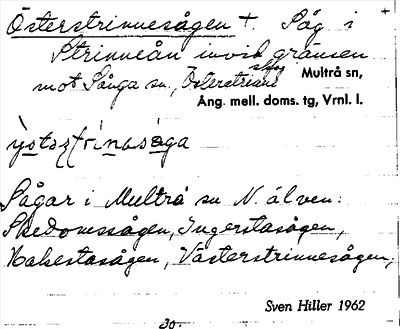 Österstrinnesågen †. Såg i
Strinneån invid gränsen
mot Sånga sn, Österstrinne skog
Multrå sn,
Ång. mell. doms. tg, Vrnl. l.
Sågar i Multrå sn N. älven:
Skedomssågen, Ingerstasågen,
Nakestasågen, Västerstrinnesågen,
Sven Hiller 1962
30.